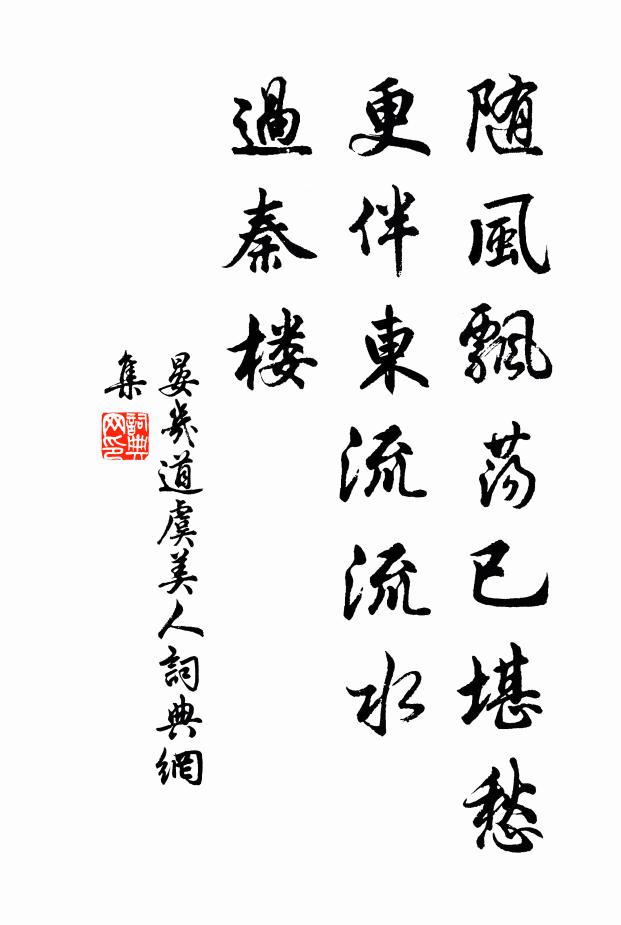 随風飄荡已堪愁
更伴東流流水
過秦楼
晏幾道虞美人詞典網
集
詞典网印